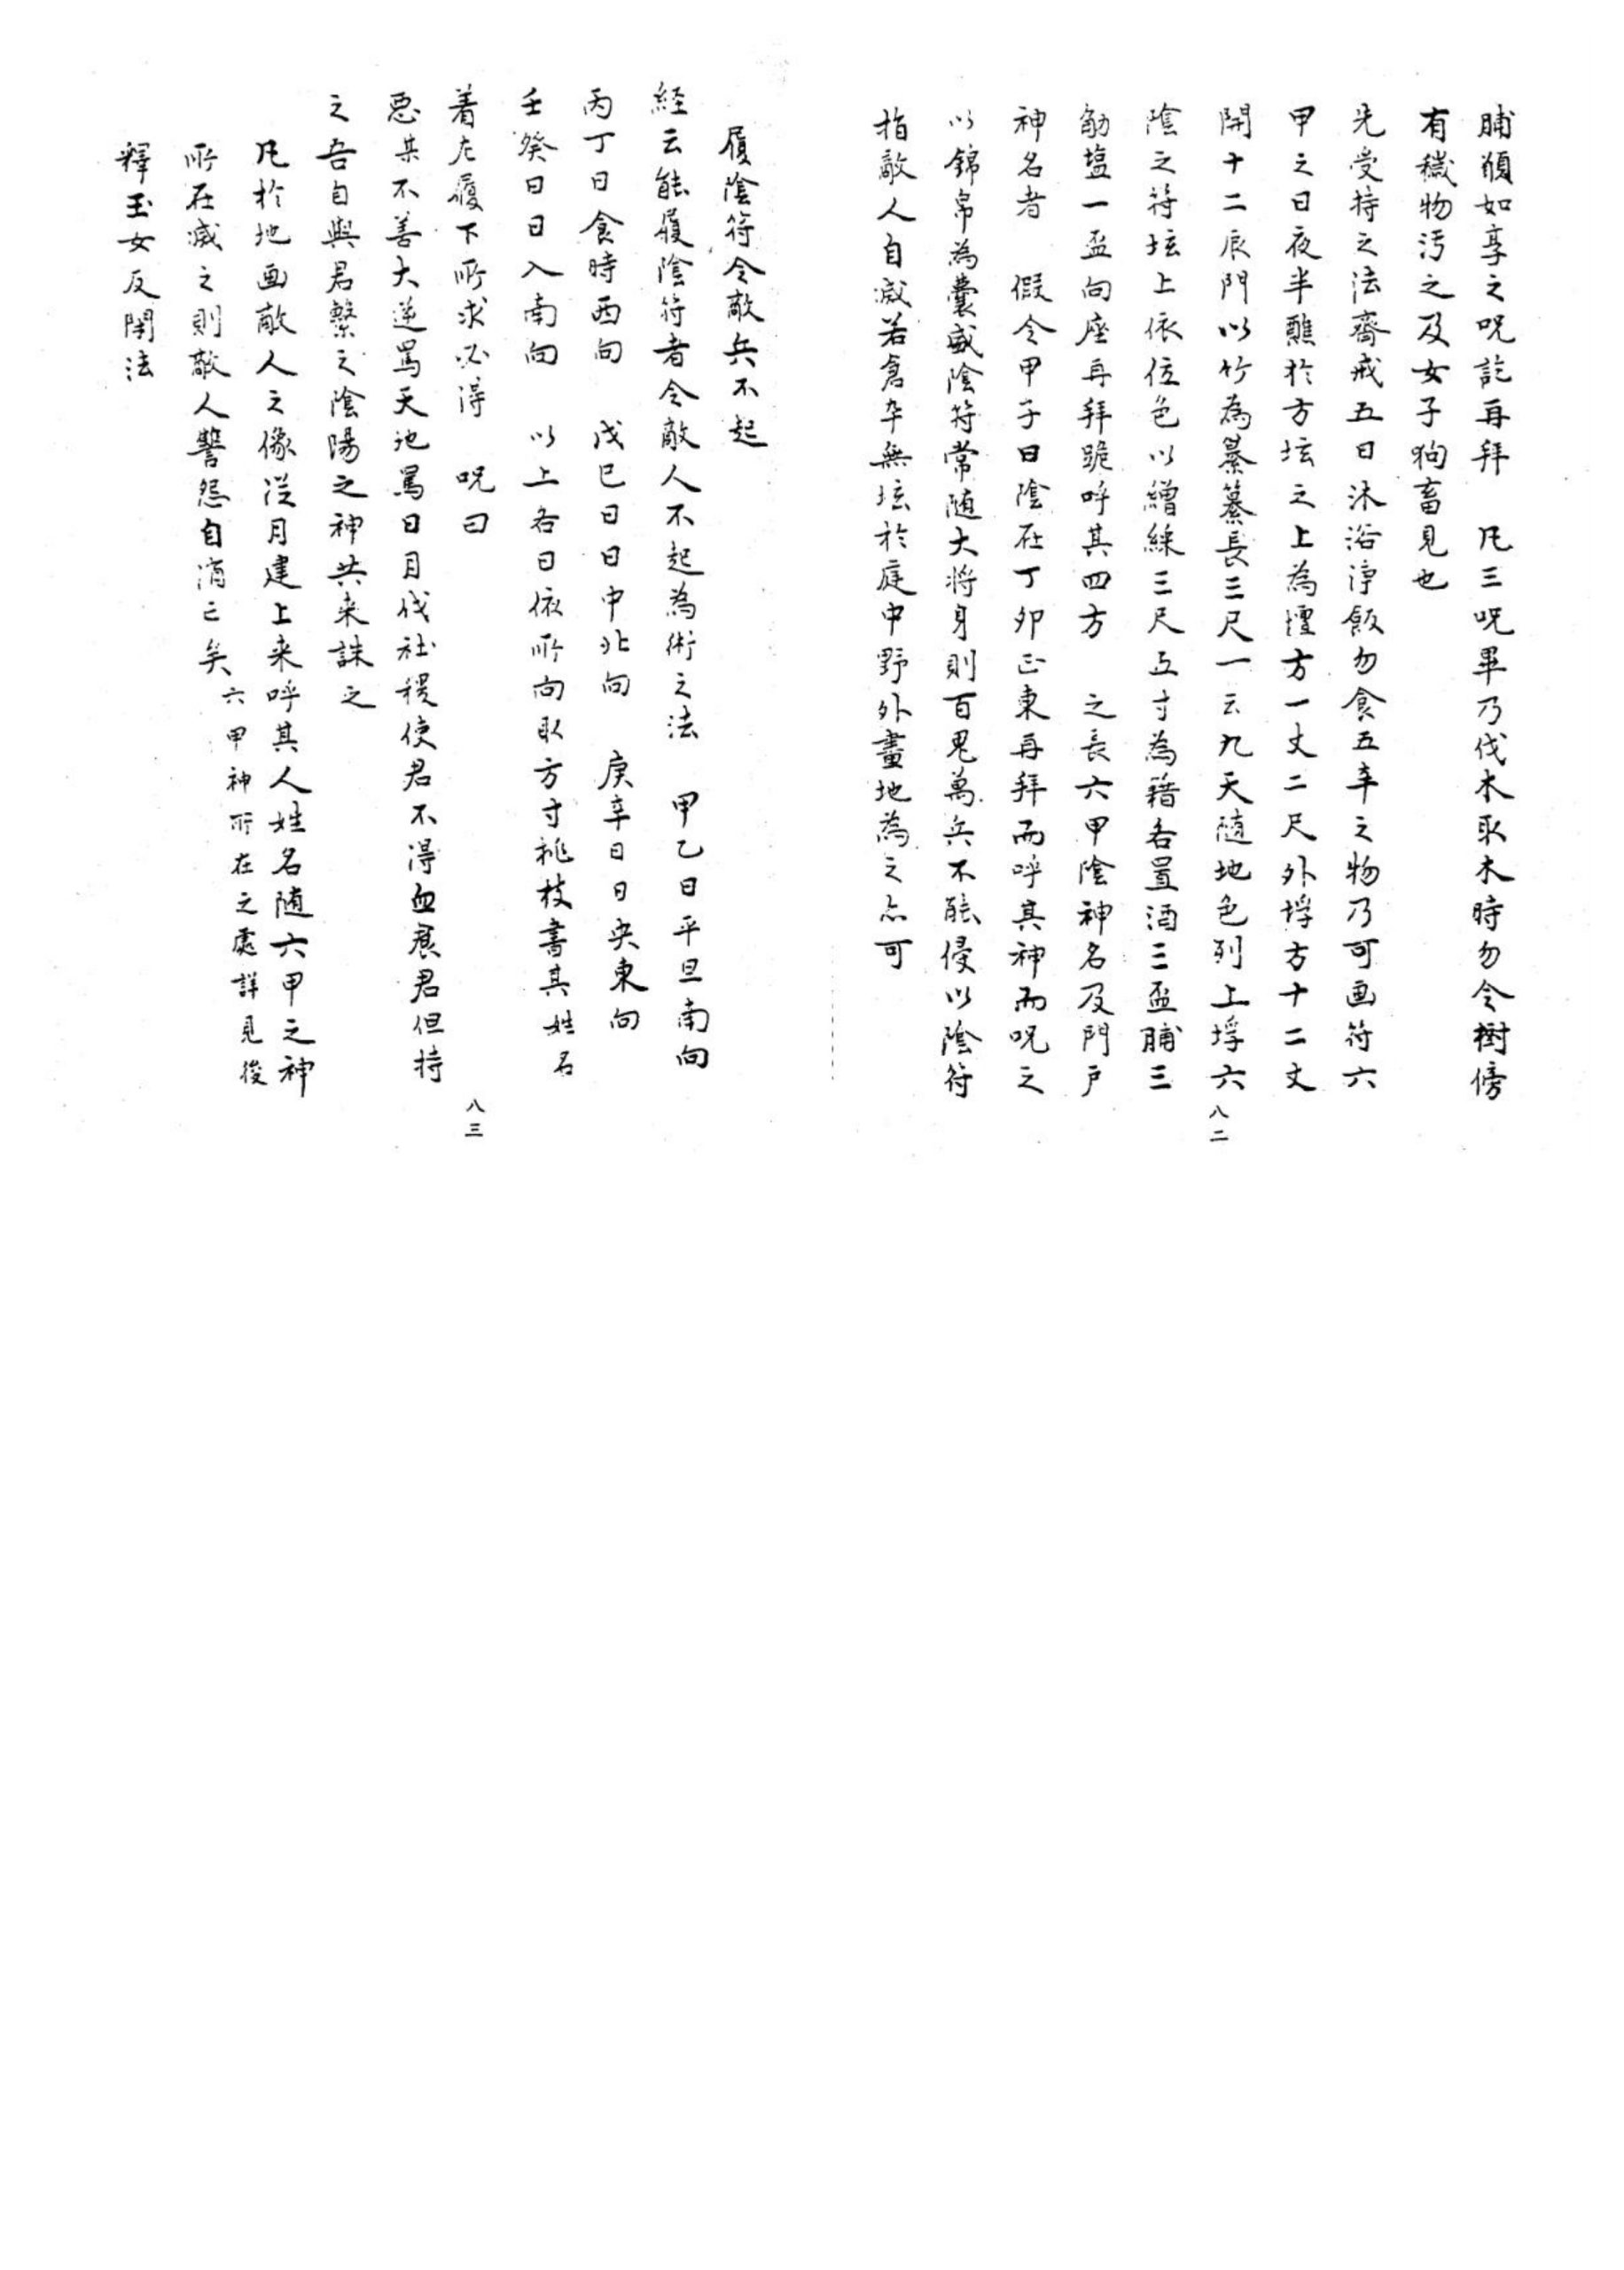 脯頋如享之呪訖再拜　凡三呪畢乃伐木取木時勿令樹傍
有穢物汚之及女子狗畜見也
先受持之法齋戒五日沐浴淨飯勿食五辛之物乃可画符六
甲之日夜半醮於方坛之上為壇方一丈二尺外埒方十二丈
開十二辰門以竹為纂纂長三尺一云九天随地色列上埒六
陰之符坛上依位色以繒綵三尺五寸為藉各置酒三盃脯三
觔塩一盃向座再拜跪呼其四方　之長六甲陰神名及門戸
神名者　假令甲子日陰在丁卯正東再拜而呼其神而呪之
以錦帛為囊盛陰符常随大将身則百鬼萬兵不能侵以陰符
指敵人自滅若倉卒無坛於庭中野外畫地為之亦可
八二
履陰符令敵兵不起
経云能履陰符者令敵人不起為術之法　甲乙日平旦南向
丙丁日食時西向　戊巳日日中北向　庚辛日日央東向
壬癸日日入南向　以上各日依所向取方寸桃枝書其姓名
着左履下所求必得　呪曰
悪某不善大逆罵天地罵日月伐社稷使君不得血食君但持
之吾自與君繫之陰陽之神共来誅之
凡於地画敵人之像従月建上来呼其人姓名随六甲之神
所在滅之則敵人讐怨自消亡矣 六甲神所在之處詳見後
釋玉女反閇法
八三